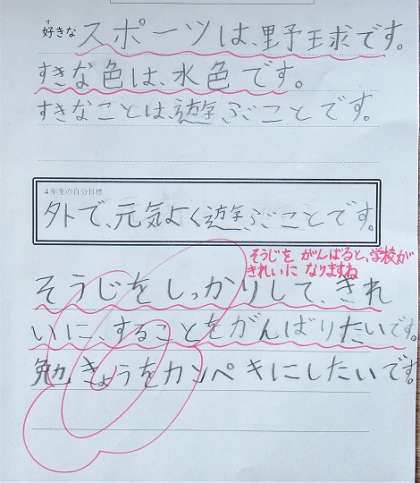 好きな スポーツは、野球です。
すきな色は、水色です。
すきなことは、遊ぶことです。
4年度の自分目標
外で、元気よく遊ぶことです。
そうじを がんばると、学校が
きれいに なりますね
そうじをしっかりして、きれ
いに、することをがんばりたいです。
勉きょうをカンペキにしたいです。